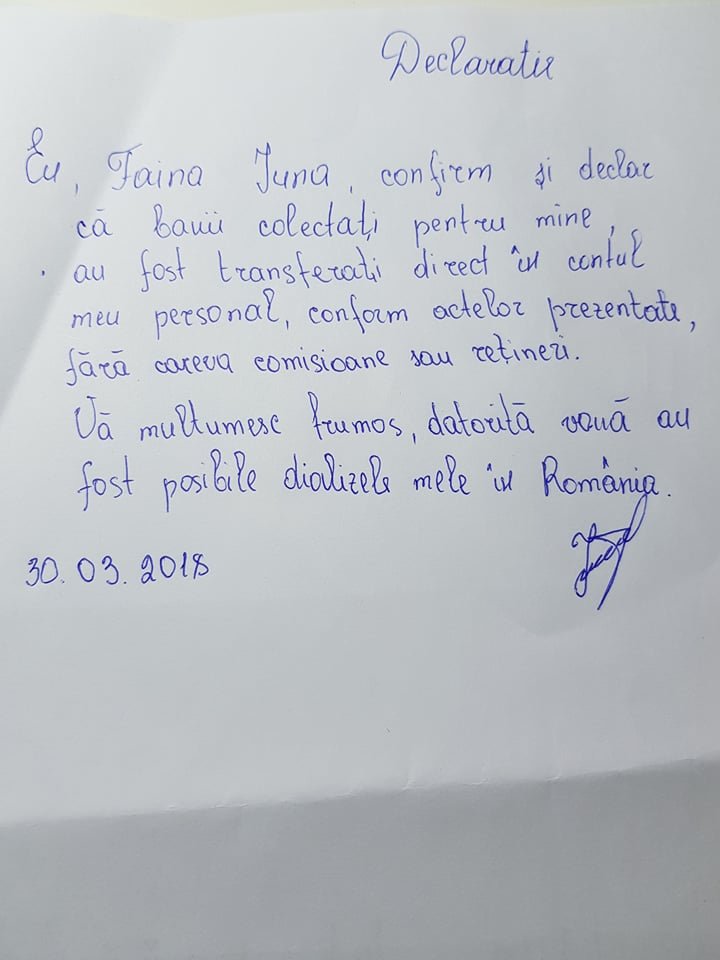 Declaratie
Eu, Faina Juna, confirm și declar
că banii colectați pentru mine,
au fost transferați direct în contul
meu personal, conform actelor prezentate,
fără careva comisioane sau rețineri.
Vă multumesc frumos, datorită vouă au
fost posibile dializele mele în România.
30.03.2018